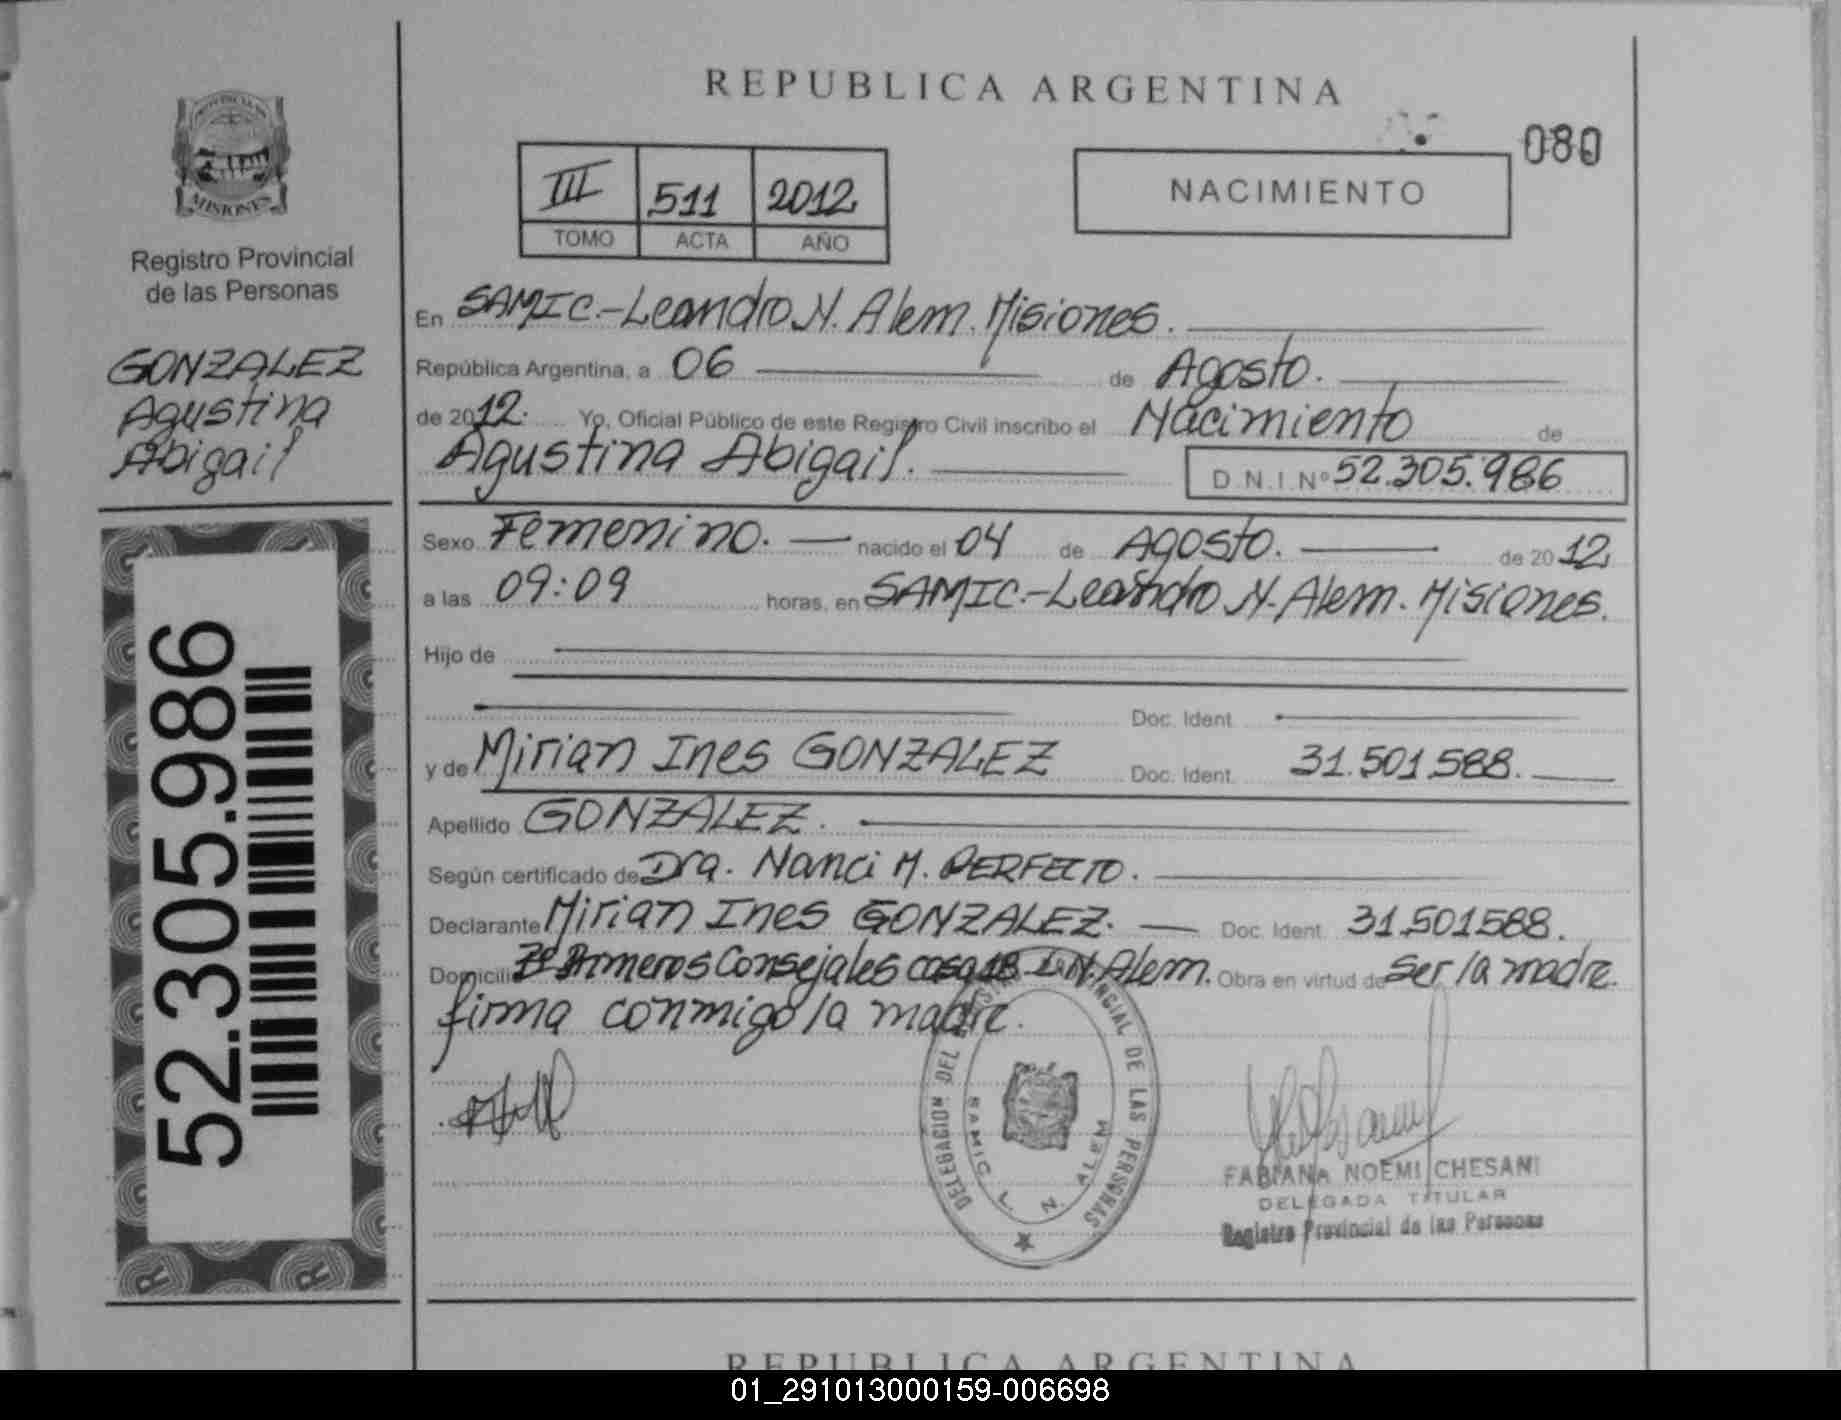 REPUBLICA ARGENTINA
080
III 511 2012
TOMO ACTA AÑO
NACIMIENTO
MISIONES
Registro Provincial
de las Personas
GONZALEZ
Agustina
Abigail
52.305.986
En SAMIC.-Leandro N. Alem. Misiones.
República Argentina, a 06 de Agosto.
de 2012. Yo, Oficial Público de este Registro Civil inscribo el Nacimiento de
Agustina Abigail. D.N.I. Nº 52.305.986
Sexo Femenino. nacido el 04 de Agosto. de 2012
a las 09:09 horas, en SAMIC.-Leandro N. Alem. Misiones.
Hijo de
Doc. Ident.
y de Mirian Ines GONZALEZ Doc. Ident. 31.501.588.
Apellido GONZALEZ.
Según certificado de Dra. Nanci M. PERFECTO.
Declarante Mirian Ines GONZALEZ. Doc. Ident. 31.501588.
Domicilio Primeros Consejales casa 18 L.N. Alem. Obra en virtud de ser la madre.
firma conmigo la madre.
DELEGACION DEL REGISTRO PROVINCIAL DE LAS PERSONAS
SAMIC L. N. ALEM
FABIANA NOEMI CHESANI
DELEGADA TITULAR
Registro Provincial de las Personas
R R
REPUBLICA ARGENTINA
01_291013000159-006698